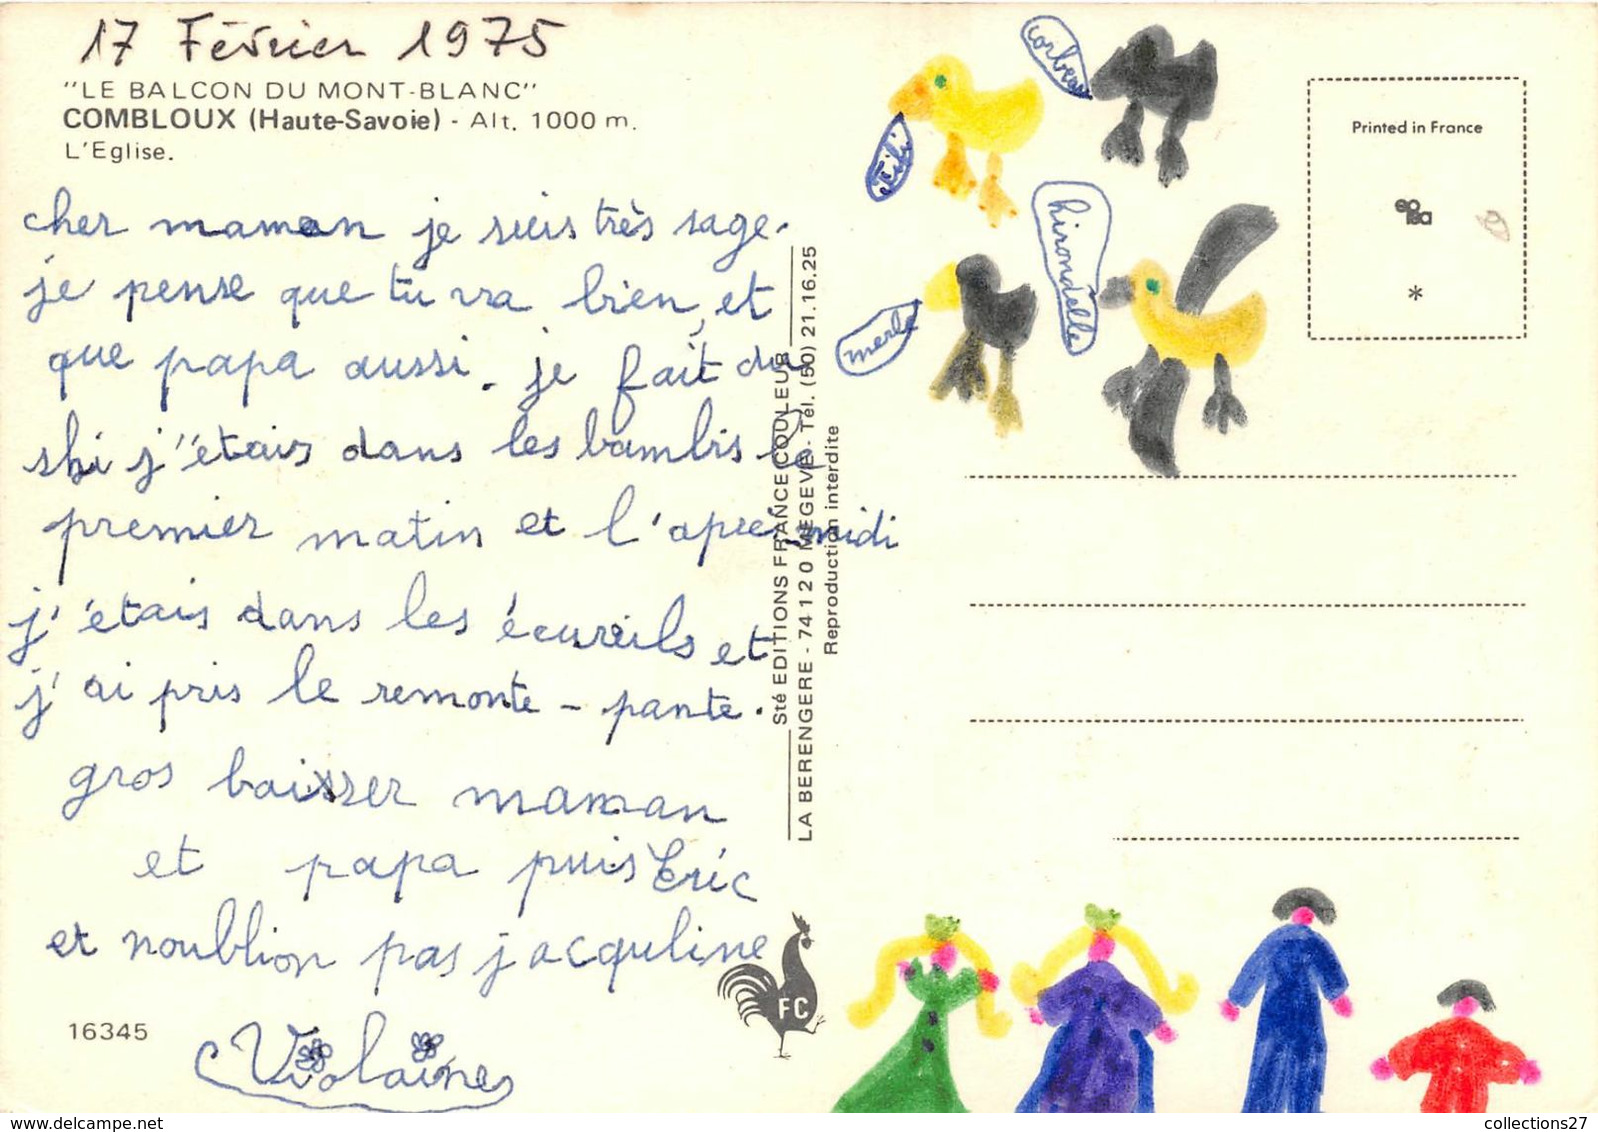 17 Février 1975
"LE BALCON DU MONT-BLANC"
COMBLOUX (Haute-Savoie) - Alt. 1000 m.
L'Eglise.
cher maman je suis très sage.
je pense que tu va bien, et
que papa aussi. je fait du
ski j'étais dans les bambis le
premier matin et l'aprei-midi
j'étais dans les écureils et
j'ai pris le remonte-pante.
gros baisser maman
et papa puis Eric
et noublion pas jacquline
Violaines
16345
FC
Sté EDITIONS FRANCE COULEUR
LA BERENGERE - 74120 MEGEVE - Tél. (50) 21.16.25
Reproduction interdite
titi
corbeau
merle
hirondelle
Printed in France
*
collections27